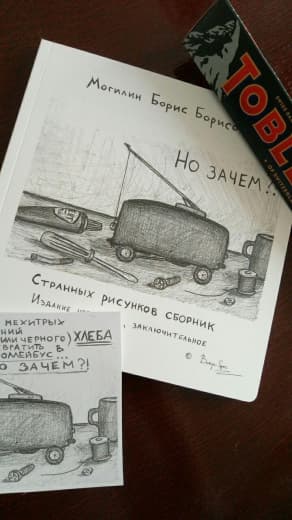 Могилин Борис
НО ЗАЧЕМ?!
СТРАННЫХ РИСУНКОВ СБОРНИК
ИЗДАНИЕ
ЗАКЛЮЧИТЕЛЬНОЕ
©
TOBLE
МЕХИТРЫХ
НИЙ
ИЛИ ЧЕРНОГО) ХЛЕБА
ВРАТИТЬ В
ОМЕЙБУС...
О ЗАЧЕМ?!